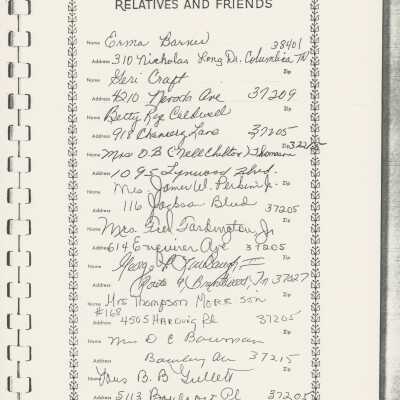 RELATIVES AND FRIENDS
Name Erma Barnes 38401
Address 310 Nicholas Long Dr. Columbia TN Zip
Name Geri Craft
Address 4210 Nevada Ave 37209
Name Betty Rye Caldwell Zip
Address 918 Chancery Lane 37205
Name Mrs D.B. (Nell Chilton) Thomson Zip
Address 109 S Lynwood Blvd.
Name Mrs. James W. Perkins Jr. Zip
Address 116 Jackson Blvd 37205
Name Mrs. Fred Tarkington, Jr Zip
Address 614 Enquirer Ave 37205
Name George II Zip
Address Route 4, Brentwood, Tn 37027
Name Mrs Thompson Zip
#168
Address 4505 Harding Rd 37205
Name Mrs D E Bowman Zip
Address Ave 37215
Name Mrs B. B. Gullett Zip
Address 5113 Pl 37205